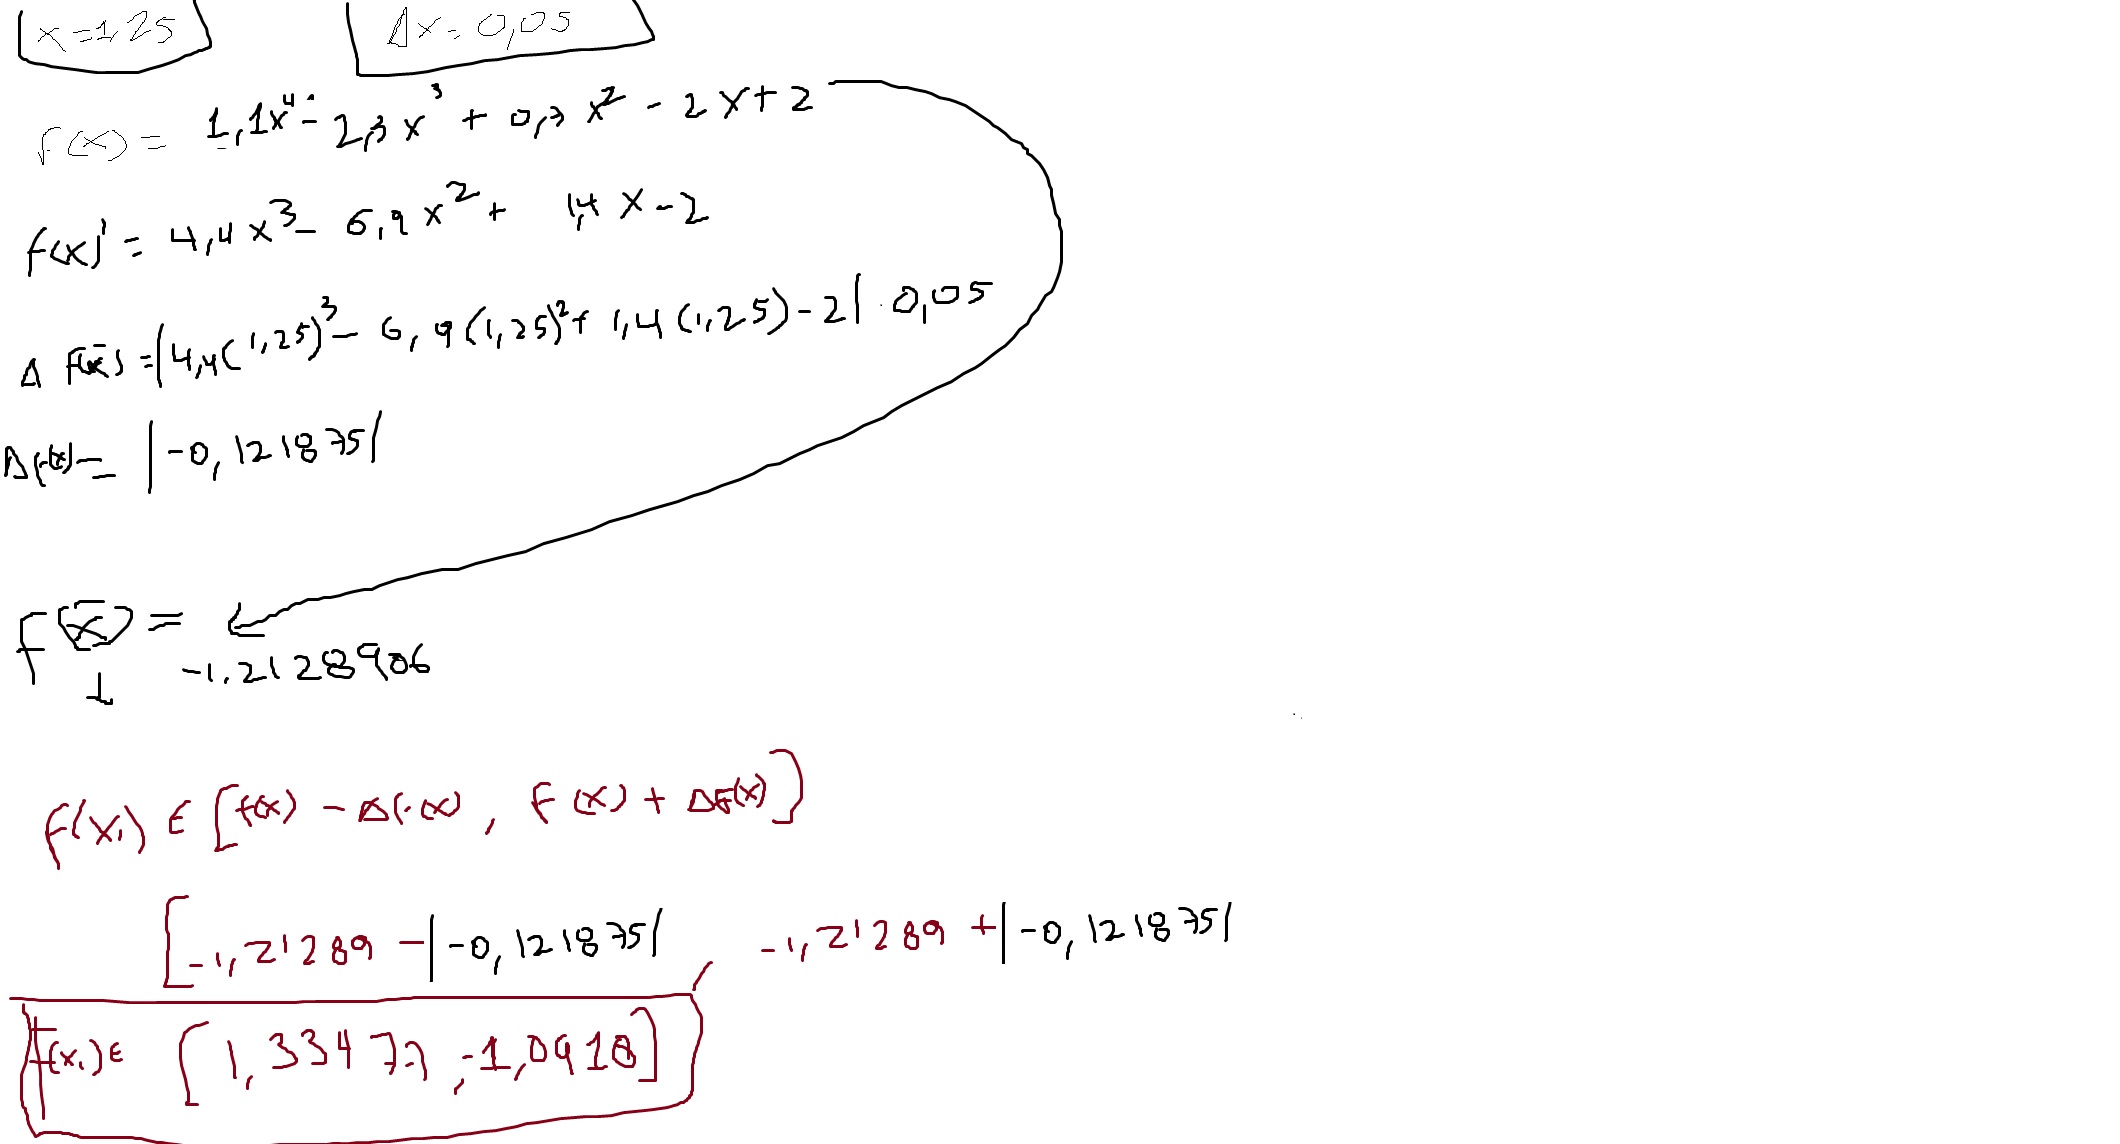 x = 1,25 Δx = 0,05
f(x) = 1,1x⁴ - 2,3x³ + 0,7x² - 2x + 2
f(x)' = 4,4x³ - 6,9x² + 1,4x - 2
Δ f(x̄) = |4,4(1,25)³ - 6,9(1,25)² + 1,4(1,25) - 2| · 0,05
Δf(x) = |-0,121875|
f(x̄) =
-1.2128906
f(x₁) ∈ [f(x) - Δf(x), f(x) + Δf(x)]
[-1,21289 - |-0,121875|, -1,21289 + |-0,121875|
f(x₁) ∈ [1,33477, -1,0918]